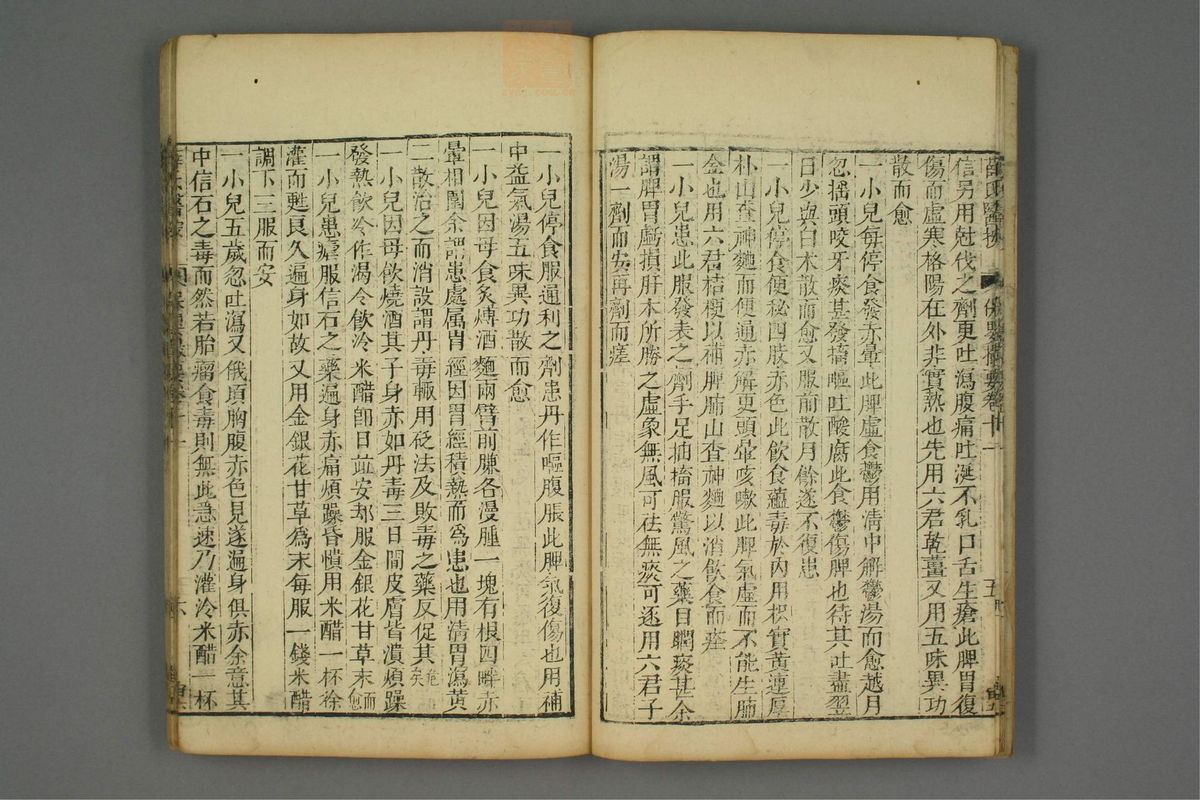 薛氏醫按　保嬰撮要卷十一　五
信另用尅伐之劑更吐瀉腹痛吐涎不乳口舌生瘡此脾胃復
傷而虛寒格陽在外非實熱也先用六君乾薑又用五味異功
散而愈
一小兒每停食發赤暈此脾虛食鬱用清中解鬱湯而愈越月
忽搖頭咬牙痰甚發搐嘔吐酸腐此食鬱傷脾也待其吐盡翌
日少與白木散而愈又服前散月餘遂不復患
一小兒停食便秘四肢赤色此飲食蘊毒於內用枳實黃連厚
朴山查神麯而便通赤解更頭暈咳嗽此脾氣虛而不能生肺
金也用六君桔梗以補脾肺山查神麯以消飲食而痊
一小兒患此服發表之劑手足抽搐服驚風之藥目瞤痰甚余
謂脾胃虧損肝木所勝之虛象無風可祛無痰可逐用六君子
湯一劑而安再劑而瘥
一小兒停食服通利之劑患丹作嘔腹脹此脾氣復傷也用補
中益氣湯五味異功散而愈
一小兒因母食炙煿酒麵兩臂前臁各漫腫一塊有根四畔赤
暈相圍余謂患處属胃經因胃經積熱而為患也用清胃瀉黃
二散治之而消設謂丹毒輙用砭法及敗毒之藥反促其危矣
一小兒因母飲燒酒其子身赤如丹毒三日間皮膚皆潰煩躁
發熱飲冷作渴令飲冷米醋卽日竝安却服金銀花甘草末而愈
一小兒患瘧服信石之藥遍身赤痛煩躁昏憒用米醋一杯徐
灌而甦良久遍身如故又用金銀花甘草為末每服一錢米醋
調下三服而安
一小兒五歲忽吐瀉又俄頃胸腹赤色見遂遍身俱赤余意其
中信石之毒而然若胎瘤食毒則無此急速乃灌冷米醋一杯
六